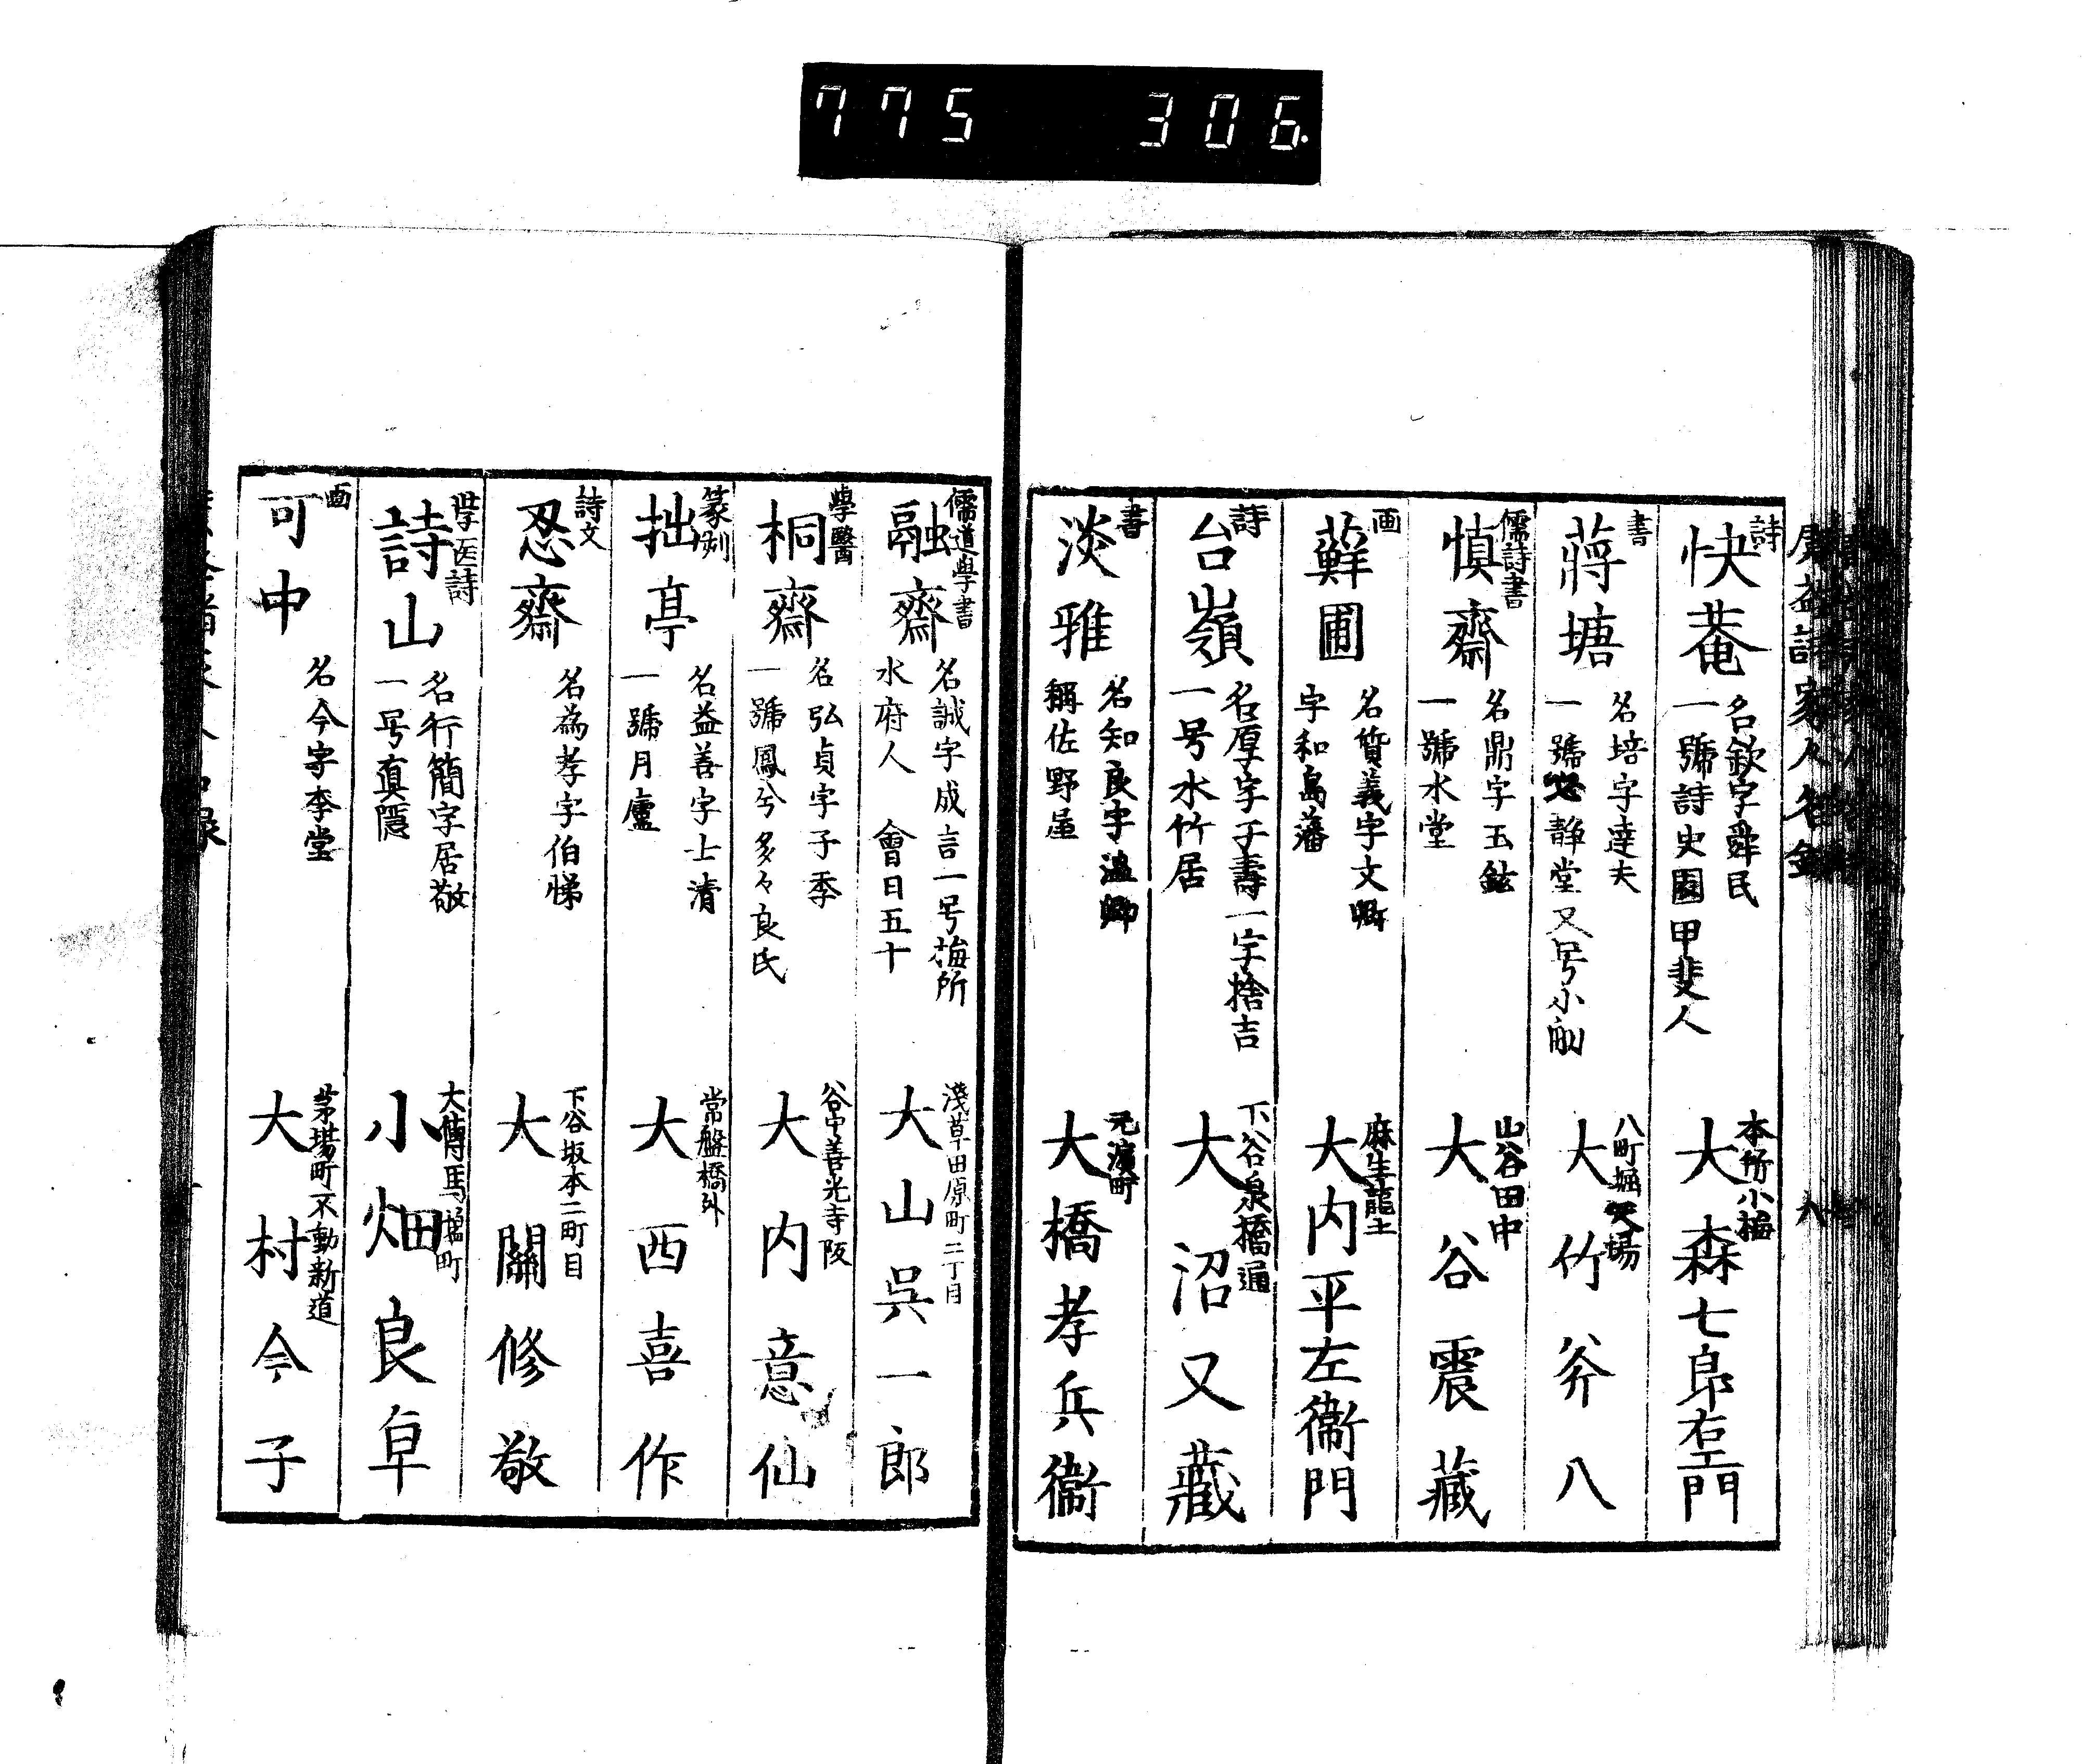 775 306.
廣益諸家人名録
八
詩
快菴
名欽字舜民
一號詩史園甲斐人
本所小梅
大森七郎右エ門
書
蒋塘
名培字達夫
一號必静堂又号小舟
八町堀天場
大竹斧八
儒詩書
慎齋
名鼎字玉鉉
一號水堂
山谷田中
大谷震藏
画
蘚圃
名質義字文卿
宇和島藩
麻生龍土
大内平左衞門
詩
台嶺
名厚字子壽一字捨吉
一号水竹居
下谷泉橋通
大沼又藏
書
淡雅
名知良字温卿
稱佐野屋
元濱町
大橋孝兵衞
儒道學書
融齋
名誠字成吉一号梅所
水府人 會日五十
淺草田原町二丁目
大山呉一郎
學醫
桐齋
名弘貞字子季
一號鳳兮多々良氏
谷中善光寺阪
大内意仙
篆刻
拙亭
名益善字士清
一號月廬
常盤橋外
大西喜作
詩文
忍齋
名為孝字伯悌
下谷坂本二町目
大關修敬
学医詩
詩山
名行簡字居敬
一号真隱
大傳馬塩町
小畑良卓
画
可中
名今字李堂
茅場町不動新道
大村今子